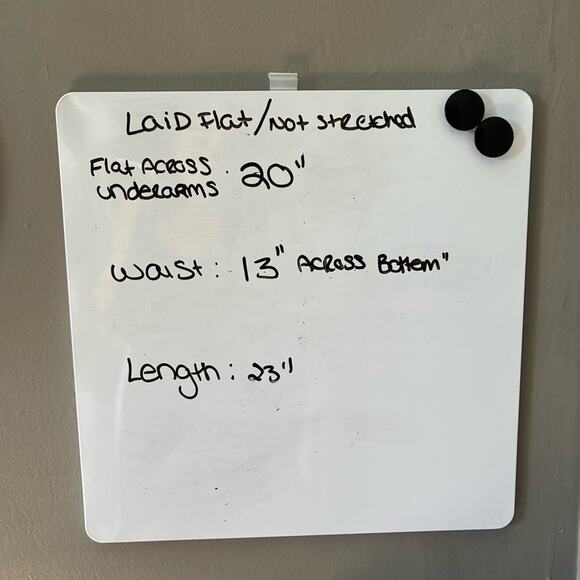 Laid Flat/Not stretched
Flat Across
underarms 20"
Waist: 13" Across Bottem"
Length: 23"